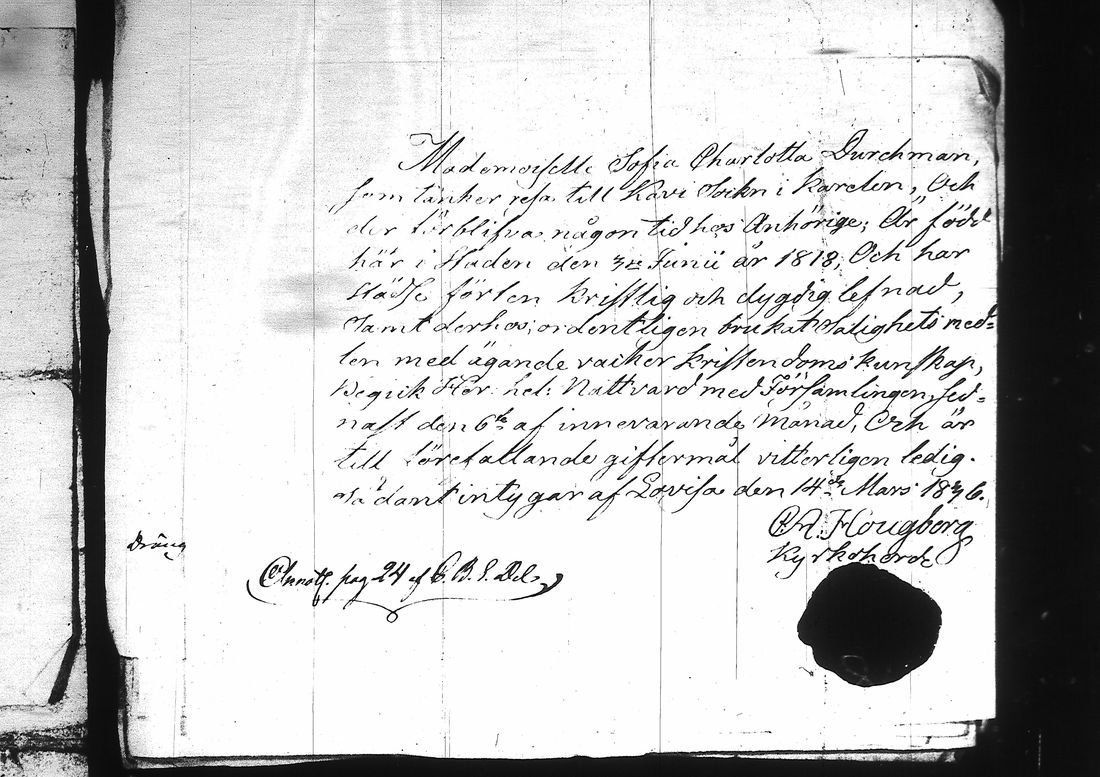 Mademoiselle Sofia Charlotta Durchman,
som tänker resa till Kavi Sokn i Karelen, Och
der förblifva någon tid hos Anhörige; Är född
här i Staden den 3je Junii år 1818; Och har
städse förten kristlig och dygdig lefnad,
samt derhos ordentligen brukat Salighets med=
len med ägande vacker kristendoms kunskap,
Begick Herr: hel: Nattvard med Församlingen sed=
nast den 6te af innevarande Månad, Och är
till förefallande giftermål vitterligen ledig.
Sådant intygar af Lovisa den 14de Mars 1836.
Hougberg
Kyrkoherde
Dräng
Annot. pag 24 af C. B. I. Del